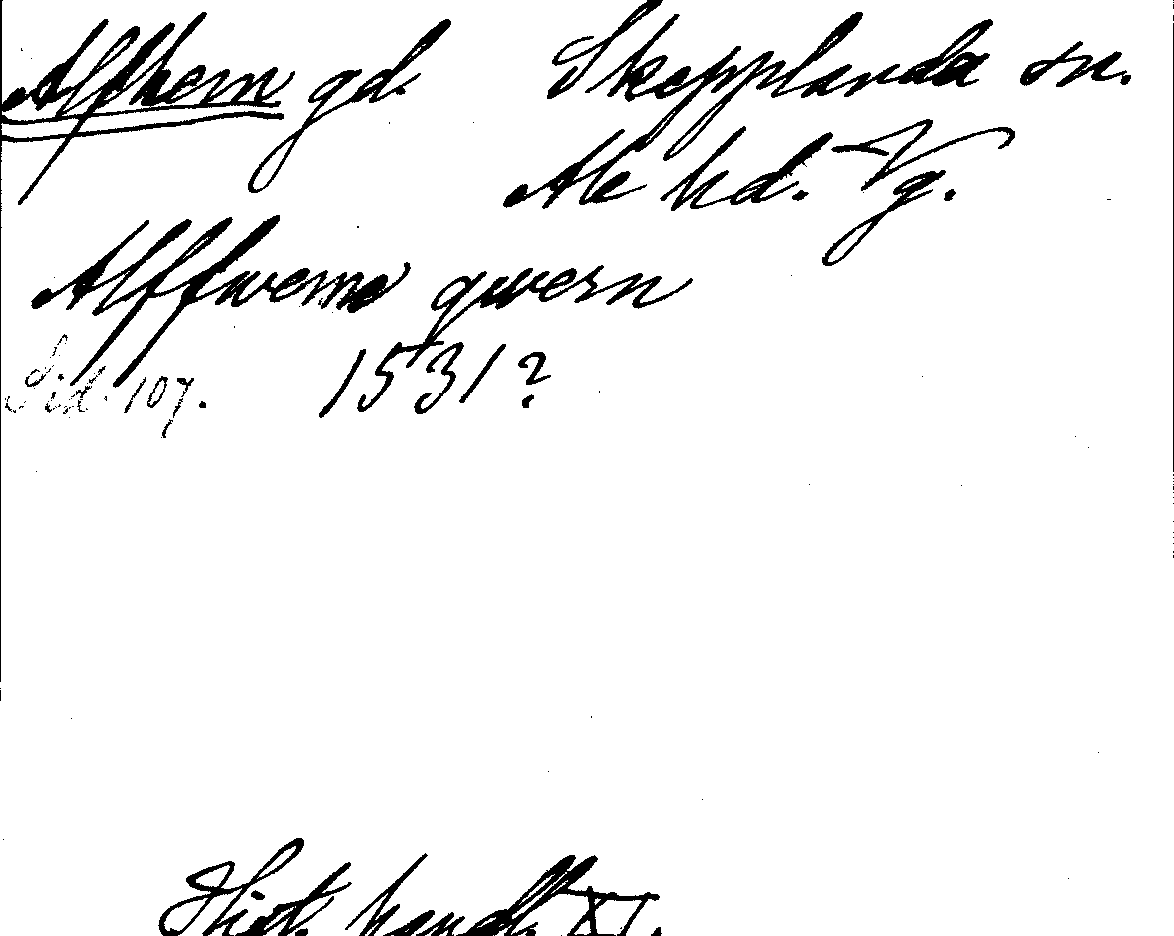 Alfhem gd. Skepplanda sn.
Ale hd. Vg.
Alffwems qwern
Sid. 107. 1531?
Hist. handl. XI.